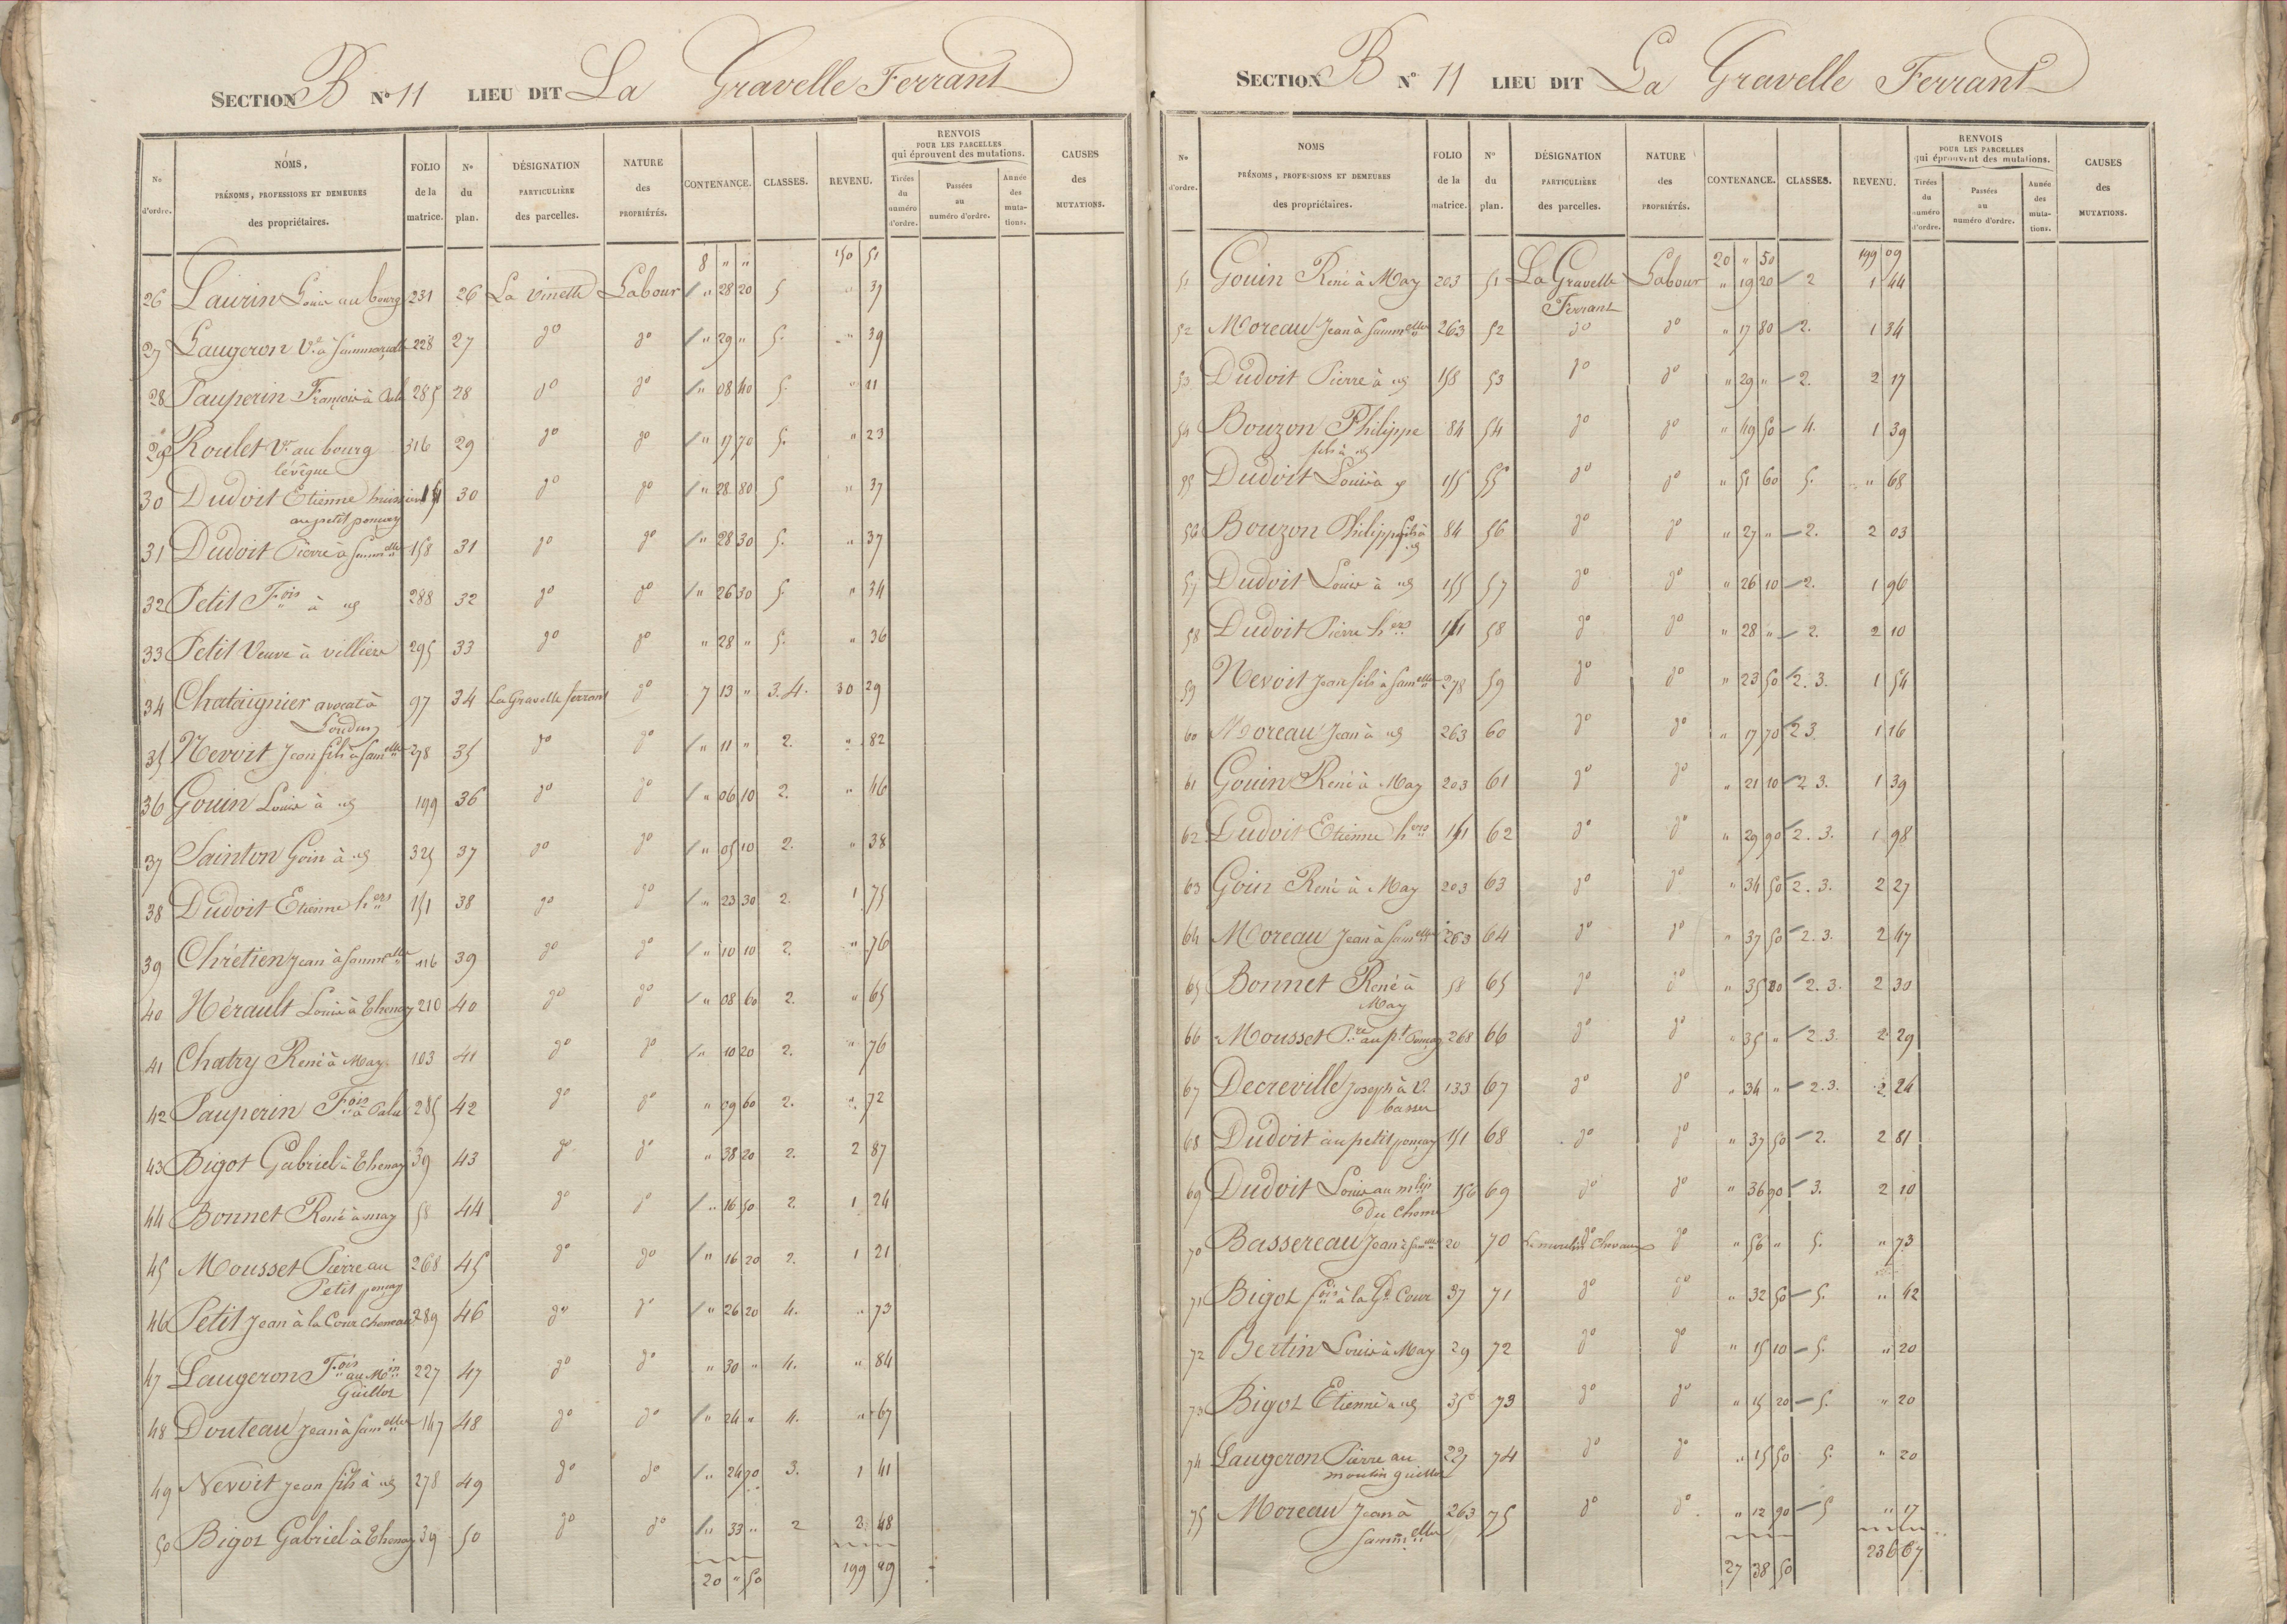 SECTION B N° 11 LIEU DIT La Gravelle Ferrant
N° d'ordre.
NOMS, PRÉNOMS, PROFESSIONS ET DEMEURES des propriétaires.
FOLIO de la matrice.
N° du plan.
DÉSIGNATION PARTICULIÈRE des parcelles.
NATURE des PROPRIÉTÉS.
CONTENANCE.
CLASSES.
REVENU.
RENVOIS POUR LES PARCELLES qui éprouvent des mutations.
Tirées du numéro d'ordre.
Passées au numéro d'ordre.
Année des mutations.
CAUSES des MUTATIONS.
8 " " 150 51
26 Laurin Louis au bourg 231 26 La Vinette Labour " 28 20 5 " 37
27 Laugeron Ve à Sammarcolle 228 27 do do " 29 " 5. " 39
28 Pauperin François à 285 28 do do " 08 40 5. " 11
29 Roulet Ve au bourg 316 29 do do " 17 70 5. " 23
lévêque
30 Dudoit Etienne huissier 151 30 do do " 28 80 5 " 37
au petit ponçay
31 Dudoit Pierre à Samm elle 158 31 do do " 28 30 5. " 37
32 Petit Fois à id 288 32 do do " 26 30 5. " 34
33 Petit Veuve à villiers 295 33 do do " 28 " 5. " 36
34 Chataignier avocat à 97 34 La Gravelle ferrant do 7 13 " 3.4. 30 29
Loudun
35 Nevoit Jean fils à Sam elle 278 35 do do " 11 " 2. " 82
36 Gouin Louis à id 199 36 do do " 06 10 2. " 46
37 Sainton Goin à id 325 37 do do " 05 10 2. " 38
38 Dudoit Etienne hers 151 38 do do " 23 30 2. 1 75
39 Chrétien Jean à Samm elle 116 39 do do " 10 10 2. " 76
40 Hérault Louis à Thenay 210 40 do do " 08 60 2. " 65
41 Chatry René à May 103 41 do do " 10 20 2. " 76
42 Pauperin Fois à 285 42 do do " 09 60 2. " 72
43 Bigot Gabriel à Thenay 39 43 do do " 38 20 2. 2 87
44 Bonnet René à may 58 44 do do " 16 50 2. 1 24
45 Mousset Pierre au 268 45 do do " 16 20 2. 1 21
Petit ponçay
46 Petit Jean à la Cour 289 46 do do " 26 20 4. " 73
47 Laugeron Fois au Min 227 47 do do " 30 " 4. " 84
Guillot
48 Douteau Jean à Sam elle 147 48 do do " 24 " 4. " 67
49 Nevoit Jean fils à id 278 49 do do " 24 70 3. 1 41
50 Bigot Gabriel à Thenay 39 50 do do " 33 " 2 2 48
20 " 50 199 09
SECTION B N° 11 LIEU DIT La Gravelle Ferrant
N° d'ordre.
NOMS PRÉNOMS, PROFESSIONS ET DEMEURES des propriétaires.
FOLIO de la matrice.
N° du plan.
DÉSIGNATION PARTICULIÈRE des parcelles.
NATURE des PROPRIÉTÉS.
CONTENANCE.
CLASSES.
REVENU.
RENVOIS POUR LES PARCELLES qui éprouvent des mutations.
Tirées du numéro d'ordre.
Passées au numéro d'ordre.
Année des mutations.
CAUSES des MUTATIONS.
20 " 50 199 09
51 Gouin René à May 203 51 La Gravelle Labour " 19 20 2 1 44
Ferrant
52 Moreau Jean à Samm elle 263 52 do do " 17 80 2. 1 34
53 Dudoit Pierre à id 158 53 do do " 29 " 2. 2 17
54 Bouzon Philippe 84 54 do do " 49 50 4. 1 39
fils à id
55 Dudoit Louis à id 155 55 do do " 51 60 5. " 68
56 Bouzon Philippe fils à 84 56 do do " 27 " 2. 2 03
id
57 Dudoit Louis à id 155 57 do do " 26 10 2. 1 96
58 Dudoit Pierre hers 151 58 do do " 28 " 2. 2 10
59 Nevoit Jean fils à Sam elle 278 59 do do " 23 50 2.3. 1 54
60 Moreau Jean à id 263 60 do do " 17 70 2 3 1 16
61 Gouin René à May 203 61 do do " 21 10 2 3. 1 39
62 Dudoit Etienne hers 151 62 do do " 29 90 2.3. 1 98
63 Goin René à May 203 63 do do " 34 50 2.3. 2 27
64 Moreau Jean à Sam elle 263 64 do do " 37 50 2.3. 2 47
65 Bonnet René à 58 65 do do " 35 20 2.3. 2 30
May
66 Mousset Pre au pt Ponçay 268 66 do do " 35 " 2.3. 2 29
67 Decreville Joseph à 133 67 do do " 34 " 2.3. 2 24
basses
68 Dudoit au petit ponçay 151 68 do do " 37 50 2. 2 81
69 Dudoit Louis au mlin 156 69 do do " 36 90 3. 2 10
du chome
70 Bassereau Jean à Sam elle 20 70 Le moulin do " 56 " 5. " 73
71 Bigot fois à la Gde Cour 37 71 do do " 32 50 5. " 42
72 Bertin Louis à May 29 72 do do " 15 10 5. " 20
73 Bigot Etienne à id 35 73 do do " 15 20 5. " 20
74 Laugeron Pierre au 227 74 do do " 15 50 5. " 20
moulin guillot
75 Moreau Jean à 263 75 do do " 12 90 5 " 17
Samm elle
27 38 50 236 67